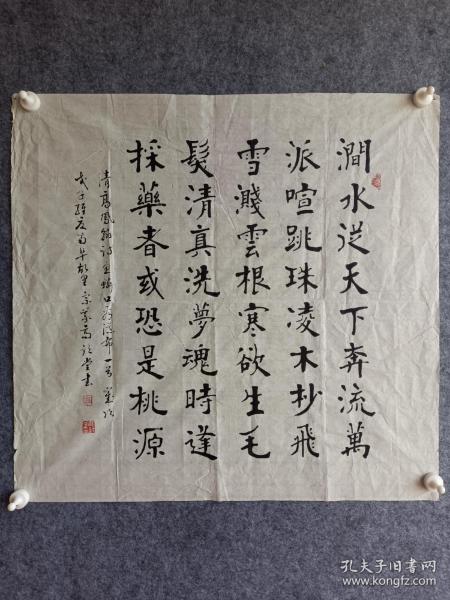 澗水從天下奔流萬
派喧跳珠凌木杪飛
雪濺雲根寒欲生毛
髮清真洗夢魂時逢
採藥者或恐是桃源
清高鳳翰詩
書
孔夫子旧书网
www.kongfz.com